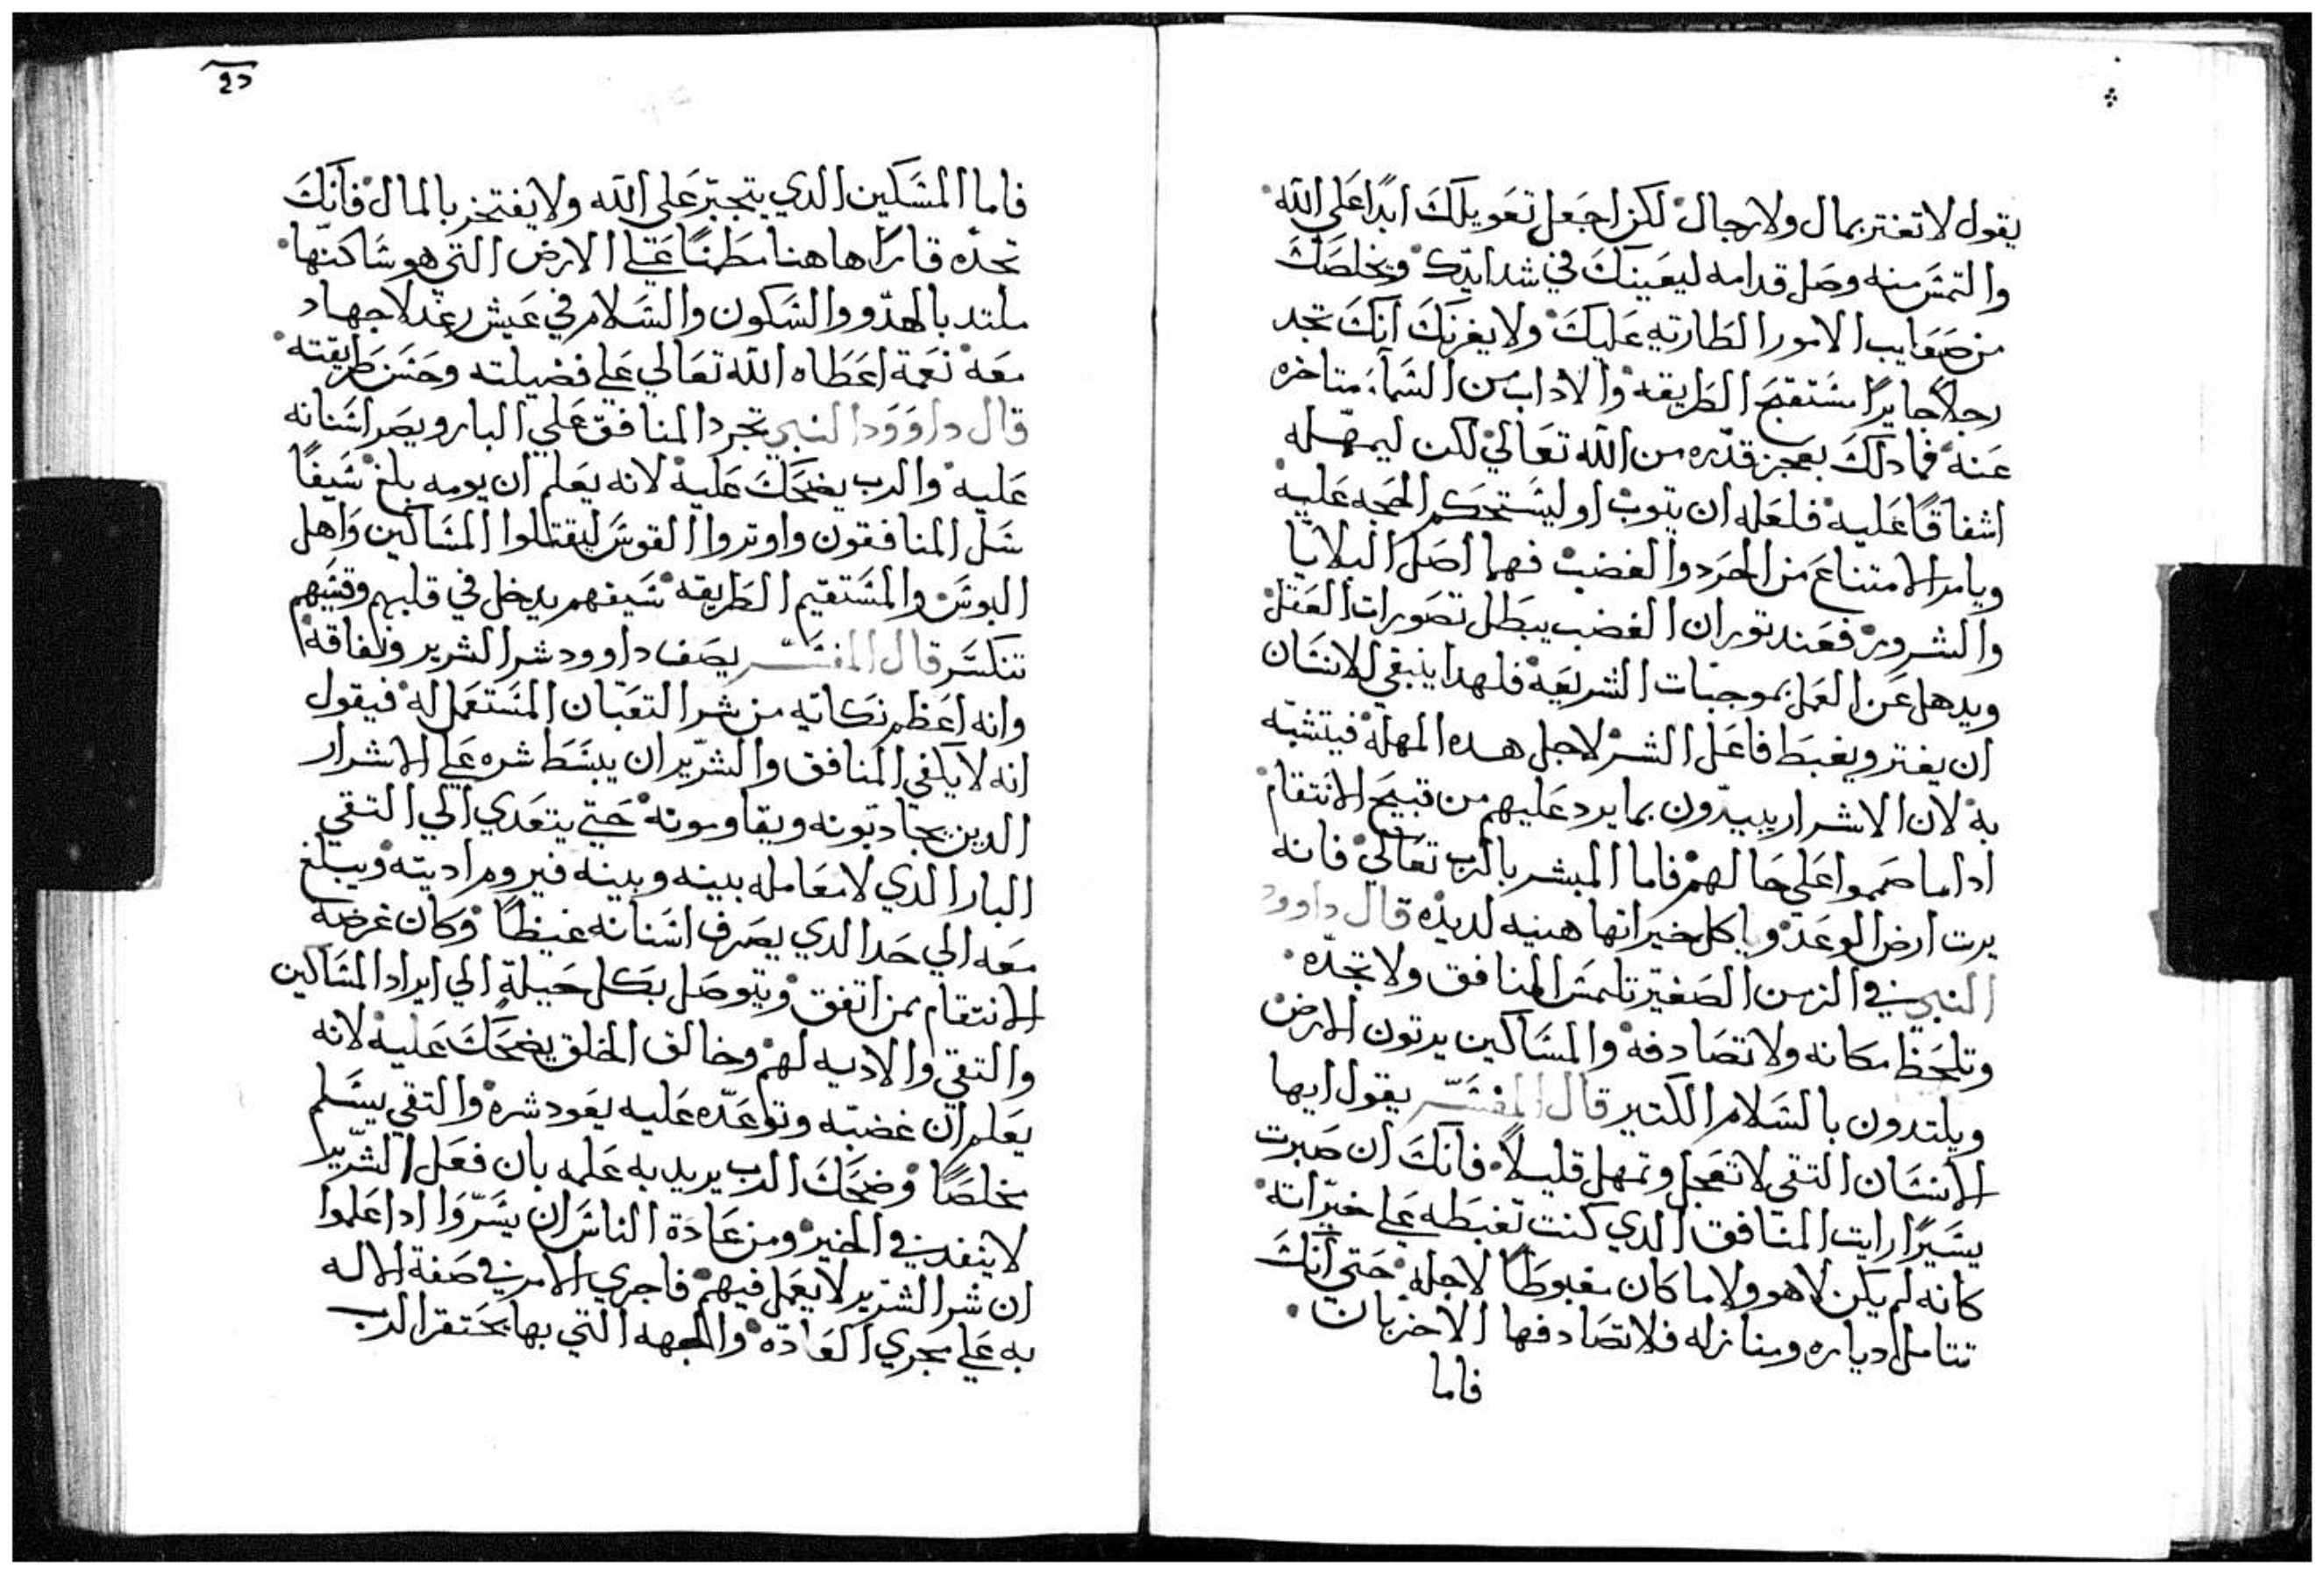 يقول لا تغتر بمال ولا رجال لكن اجعل تعويلك ابدًا علي الله
والتمس منه وصل قدامه ليعينك في شدايدك ويخلصك
من صعايب الامور الطاريه عليك ولا يغرنك انك تجد
رجلاً جايرًا مستقبح الطريقه والاداب من السمآء متاخره
عنه فما دلك بعجز قدره من الله تعالي لكن ليمهله
اشفاقًا عليه فلعله ان يتوب او ليستحكم الحجه عليه
ويامر الامتناع من الحرد والغضب فهما اصل البلايا
والشرور فعند توران الغضب يبطل تصورات العقل
ويدهل عن العمل بموجبات الشريعه فلهدا ينبغي للانسان
ان يفتر ويغبط فاعل الشر لاجل هده المهله فيتشبه
به لان الاشرار يبيدون بما يرد عليهم من قبيح الانتقام
ادا ما صمموا علي حالهم فاما المبشر بالرب تعالي فانه
يرت ارض الوعد وياكل خيراتها هنيه لديده قال داوود
النبي في الزمن الصغير تلتمس المنافق ولا تجده
وتلحظ مكانه ولا تصادفه والمساكين يرتون الارض
ويلتدون بالسلام الكتير قال المفسر يقول ايها
الانسان التقي لا تعجل وتمهل قليلاً فانك ان صبرت
يسيرًا رايت المنافق الدي كنت تغبطه علي خيراته
كانه لم يكن لا هو ولا ما كان مغبوطًا لاجله حتي انك
تتامل دياره ومنازله فلا تصادفها الا خربان
فاما
دو
فاما المسكين الدي يتجبر علي الله ولا يفتخر بالمال فانك
تجده قارًا هاهنا مطمنًا علي الارض التي هو ساكنها
ملتد بالهدو والسكون والسلام في عيش رغد لا جهاد
معه نعمة اعطاه الله تعالي علي فضيلته وحسن طريقته
قال داوود النبي تجرد المنافق علي البار ويصر اسنانه
عليه والرب يضحك عليه لانه يعلم ان يومه بلغ سيفًا
سل المنافقون واوتروا القوس ليقتلوا المساكين واهل
البوس والمستقيم الطريقه سيفهم يدخل في قلبهم وقسيهم
تنكسر قال المفسر يصف داوود شر الشرير ونفاقه
وانه اعظم نكايه من شر التعبان المستعمل له فيقول
انه لا يكفي المنافق والشرير ان يبسط شره علي الاشرار
الدين يجادبونه ويقاومونه حتي يتعدي الي التقي
البار الدي لا معامله بينه وبينه فيروم اديته ويبلغ
معه الي حد الدي يصرف اسنانه غيظًا وكان غرضه
الانتقام بمن اتفق ويتوصل بكل حيلة الي ايراد المساكين
والتقي والاديه لهم وخالق الخلق يضحك عليه لانه
يعلم ان غضبه وتوعده عليه يعود شره والتقي يسلم
مخلصًا وضحك الرب يريد به علمه بان فعل الشرير
لا ينفد في الخير ومن عادة الناس ان يسروا ادا علموا
ان شر الشرير لا يعمل فيهم فاجري الامر في صفة الاله
به علي مجري العادة والجهه التي بها يحتقر الرب